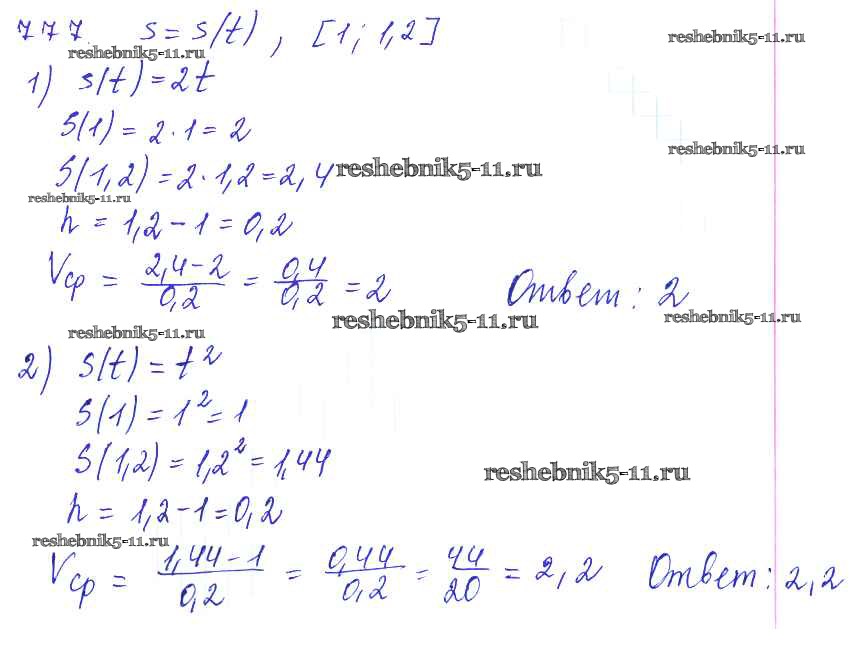 777. s = s(t), [1; 1,2]
reshebnik5-11.ru reshebnik5-11.ru
1) s(t) = 2t
S(1) = 2 · 1 = 2
reshebnik5-11.ru
S(1,2) = 2 · 1,2 = 2,4 reshebnik5-11.ru
reshebnik5-11.ru
h = 1,2 - 1 = 0,2
Vср = (2,4 - 2)/0,2 = 0,4/0,2 = 2 Ответ: 2
reshebnik5-11.ru reshebnik5-11.ru reshebnik5-11.ru
2) S(t) = t²
S(1) = 1² = 1
S(1,2) = 1,2² = 1,44
reshebnik5-11.ru
h = 1,2 - 1 = 0,2
reshebnik5-11.ru
Vср = (1,44 - 1)/0,2 = 0,44/0,2 = 44/20 = 2,2 Ответ: 2,2